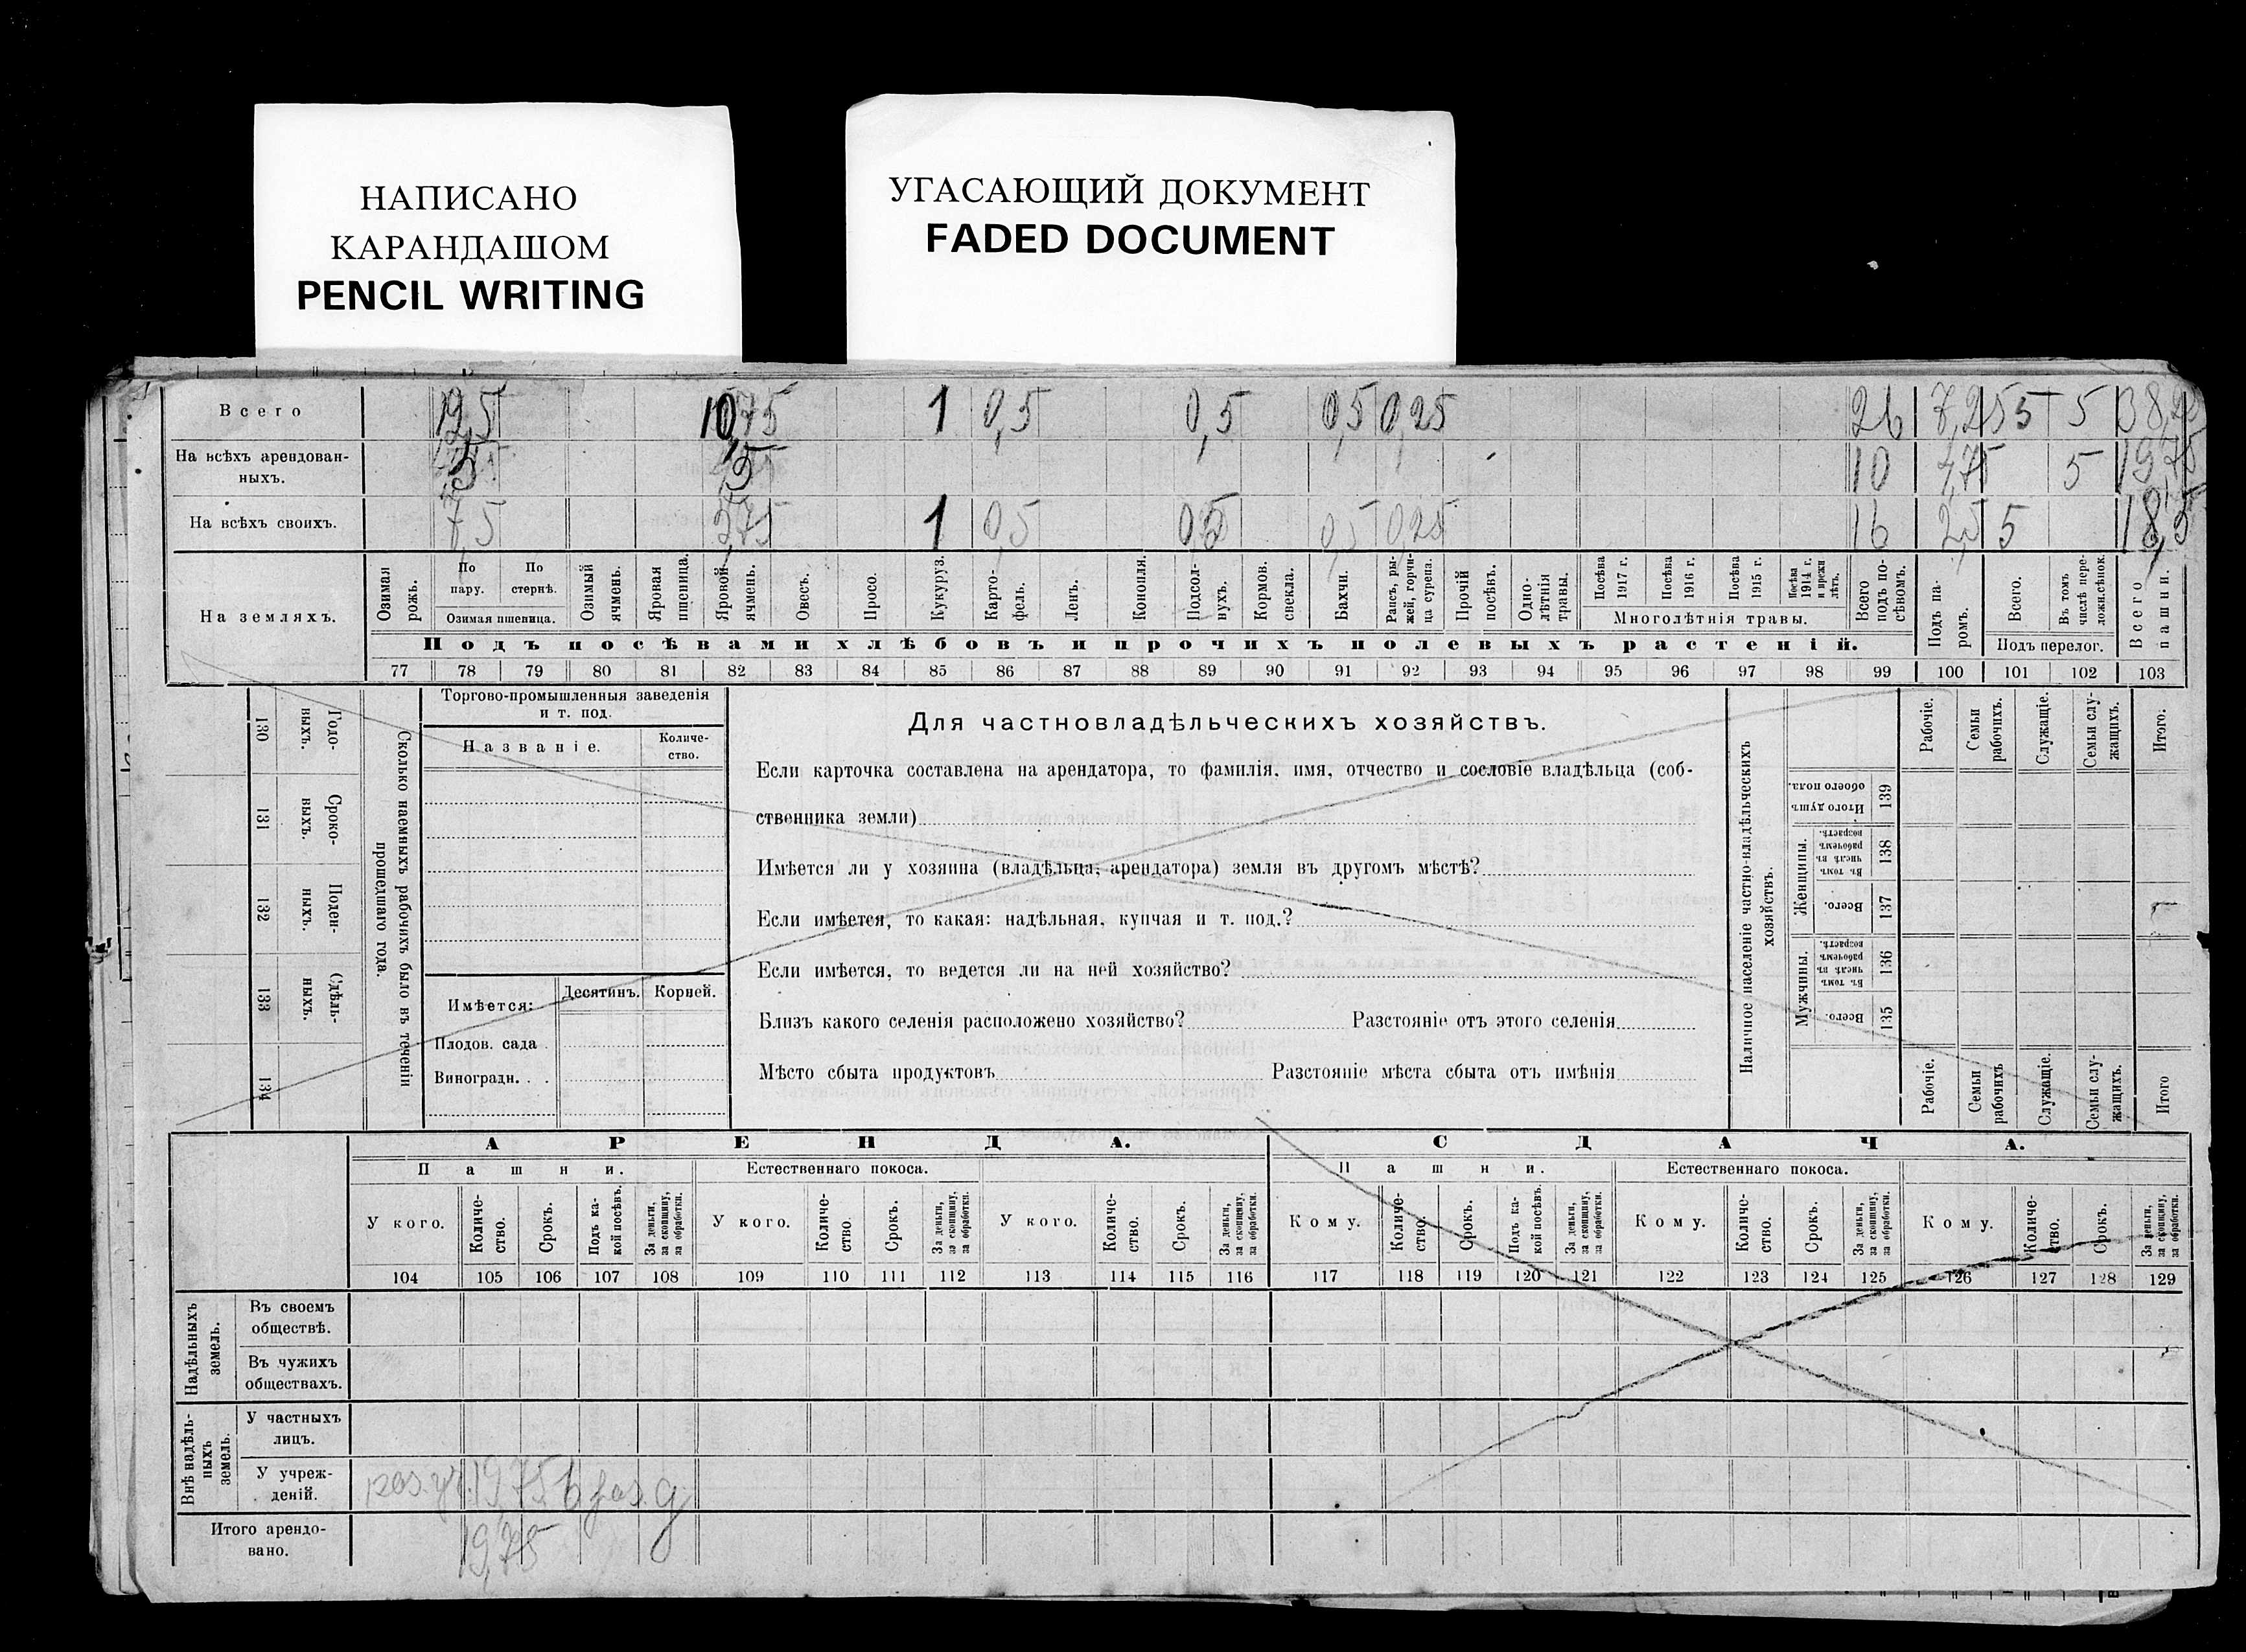 НАПИСАНО
КАРАНДАШОМ
PENCIL WRITING
УГАСАЮЩИЙ ДОКУМЕНТ
FADED DOCUMENT
Всего 12,5 10,75 1 0,5 0,5 0,5 0,25 26 7,25 5 5 38,25
На всѣхъ арендован-
ныхъ. 5 5 10 4,75 5 19,75
На всѣхъ своихъ. 7,5 5,75 1 0,5 0,5 0,5 0,25 16 2,5 5 18,5
На земляхъ.
Озимая рожь.
По пару.
По стернѣ.
Озимая пшеница.
Озимый ячмень.
Яровая пшеница.
Яровой ячмень.
Овесъ.
Просо.
Кукуруз.
Карто-
фель.
Ленъ.
Конопля.
Подсол-
нухъ.
Кормов. свекла.
Бахчи.
Рапсъ, ры-
жей, горчи-
ца сурепа.
Прочій посѣвъ.
Одно-
лѣтнія травы.
Посѣва 1917 г.
Посѣва 1916 г.
Посѣва 1915 г.
Посѣва 1914 г. и прежн лѣтъ.
Многолѣтнія травы.
Всего подъ по-
сѣвомъ.
Подъ па-
ромъ.
Всего.
Въ томъ числѣ пере-
ложн. сѣнок.
Подъ перелог.
Всего пашни.
Подъ посѣвами хлѣбовъ и прочихъ полевыхъ растеній.
77 78 79 80 81 82 83 84 85 86 87 88 89 90 91 92 93 94 95 96 97 98 99 100 101 102 103
130 Годо-
выхъ.
131 Сроко-
выхъ.
132 Поден-
ныхъ.
133 Сдѣль-
ныхъ.
134
Сколько наемныхъ рабочихъ было въ теченіи
прошедшаго года.
Торгово-промышленныя заведенія
и т. под.
Названіе.
Количе-
ство.
Имѣется: Десятинъ. Корней.
Плодов. сада
Виноградн. . .
Для частновладѣльческихъ хозяйствъ.
Если карточка составлена на арендатора, то фамилія, имя, отчество и сословіе владѣльца (соб-
ственника земли)
Имѣется ли у хозяина (владѣльца, арендатора) земля въ другомъ мѣстѣ?
Если имѣется, то какая: надѣльная, купчая и т. под.?
Если имѣется, то ведется ли на ней хозяйство?
Близъ какого селенія расположено хозяйство? Разстояніе отъ этого селенія
Мѣсто сбыта продуктовъ Разстояніе мѣста сбыта отъ имѣнія
Наличное населеніе частно-владѣльческихъ
хозяйствъ.
Рабочіе.
Семьи рабочихъ.
Служащіе.
Семьи слу-
жащихъ.
Итого.
Итого душъ обоего пола. 139
Женщины.
Въ томъ числѣ въ рабочемъ возрастѣ. 138
Всего. 137
Мужчины.
Въ томъ числѣ въ рабочемъ возрастѣ. 136
Всего. 135
Рабочіе.
Семьи рабочихъ
Служащіе.
Семьи слу-
жащихъ.
Итого
АРЕНДА. СДАЧА.
Пашни. Естественнаго покоса. Пашни. Естественнаго покоса.
У кого.
Количе-
ство.
Срокъ.
Подъ ка-
кой посѣвъ.
За деньги, за скопщину, за обработки.
У кого.
Количе-
ство.
Срокъ.
За деньги, за скопщину, за обработки.
У кого.
Количе-
ство.
Срокъ.
За деньги, за скопщину, за обработки.
Кому.
Количе-
ство.
Срокъ.
Подъ ка-
кой посѣвъ.
За деньги, за скопщину, за обработки.
Кому.
Количе-
ство.
Срокъ.
За деньги, за скопщину, за обработки.
Кому.
Количе-
ство.
Срокъ.
За деньги, за скопщину, за обработки.
104 105 106 107 108 109 110 111 112 113 114 115 116 117 118 119 120 121 122 123 124 125 126 127 128 129
Надѣльныхъ
земель.
Въ своемъ
обществѣ.
Въ чужихъ
обществахъ.
Внѣ надѣль-
ныхъ
земель.
У частныхъ
лицъ.
У учреж-
деній. 19,75 6
Итого арендо-
вано. 19,75